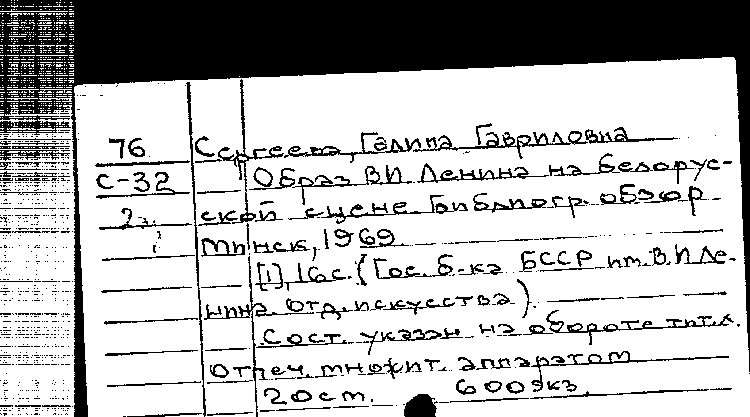 76 Сергеева, Галина Гавриловна
С-32 Образ В.И. Ленина на белорус-
2 ской сцене. Библиогр. обзор
Минск, 1969.
[1], 16 с. (Гос. б-ка БССР им. В.И. Ле-
нина. Отд. искусства)
Сост. указан на обороте тит. л.
Отпеч. множит. аппаратом
20 ст. 600 экз.